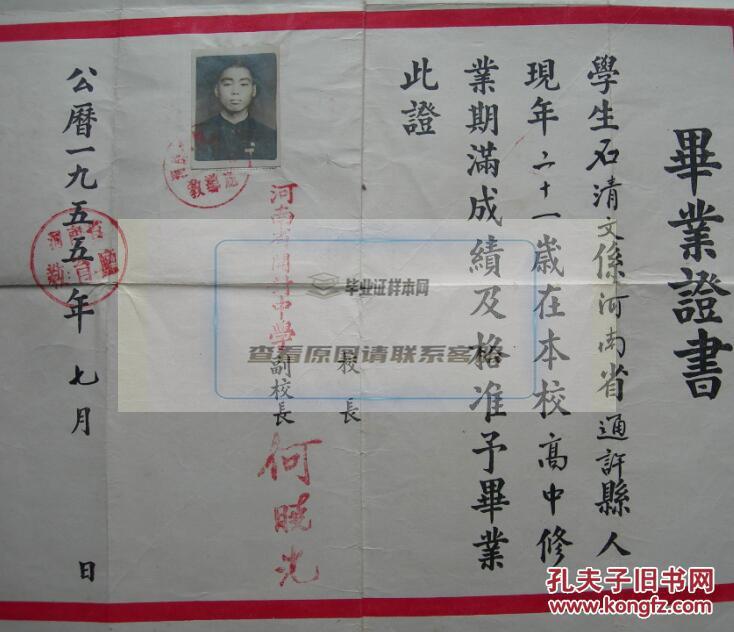 畢業證書
學生石清文係河南省通許縣人
現年二十一歲在本校高中修
業期滿成績及格准予畢業
此證
校長
河南省開封中學副校長何曉光
公曆一九五五年七月 日
毕业证样本网
查看原图请联系客服
孔夫子旧书网
www.kongfz.com